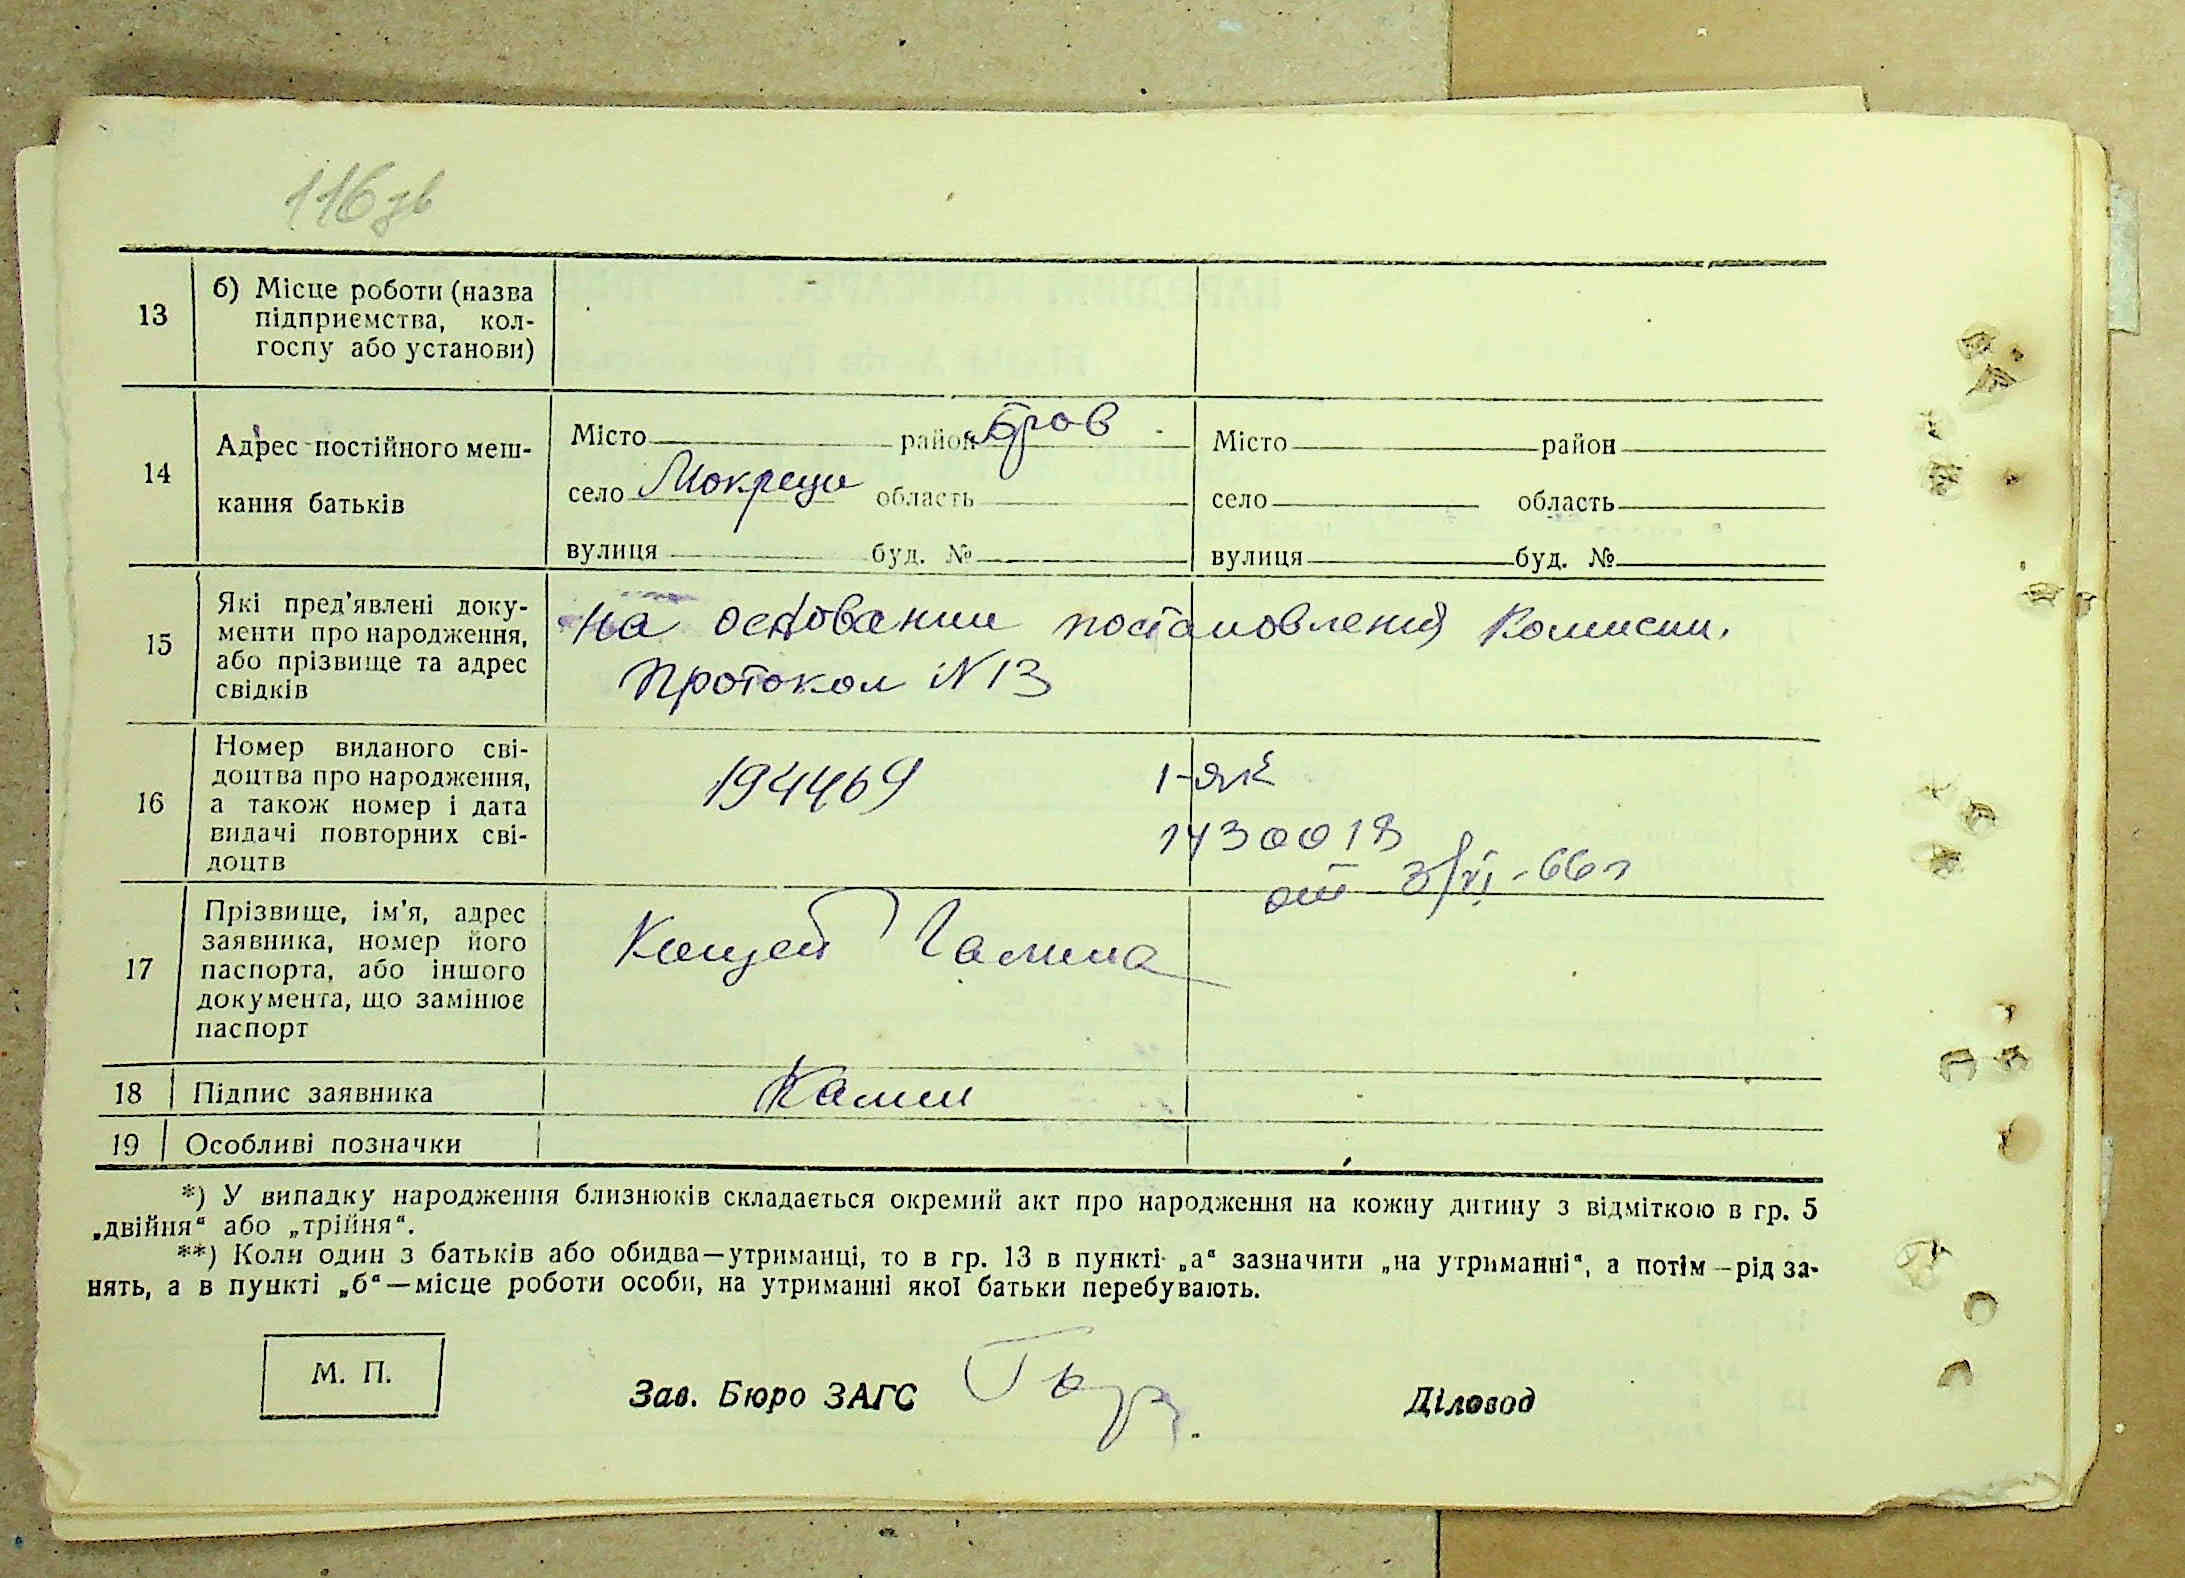 116 зв
13
б) Місце роботи (назва
підприємства, кол-
госпу або установи)
14
Адрес постійного меш-
кання батьків
Місто район Бров
село Мокрець область
вулиця буд. №
Місто район
село область
вулиця буд. №
15
Які пред'явлені доку-
менти про народження,
або прізвище та адрес
свідків
На основании постановления Комиссии.
Протокол N 13
16
Номер виданого сві-
доцтва про народження,
а також номер і дата
видачі повторних сві-
доцтв
194469
1-ЯК
1430018
от 3/VI-66 г
17
Прізвище, ім'я, адрес
заявника, номер його
паспорта, або іншого
документа, що замінює
паспорт
Кащей Галина
18
Підпис заявника
19
Особливі позначки
*) У випадку народження близнюків складається окремий акт про народження на кожну дитину з відміткою в гр. 5
„двійня“ або „трійня“.
**) Коли один з батьків або обидва—утриманці, то в гр. 13 в пункті „а“ зазначити „на утриманні“, а потім—рід за-
нять, а в пункті „б“—місце роботи особи, на утриманні якої батьки перебувають.
М. П.
Зав. Бюро ЗАГС
Діловод